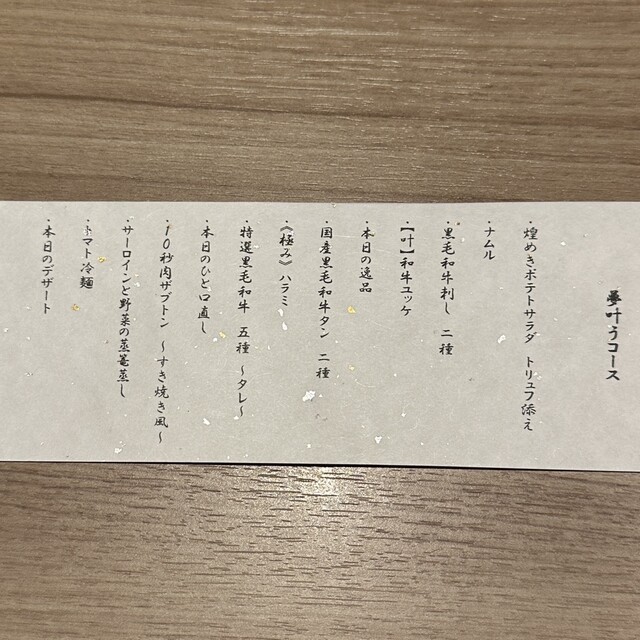 夢叶うコース
・煌めきポテトサラダ トリュフ添え
・ナムル
・黒毛和牛刺し 二種
・【叶】和牛ユッケ
・本日の逸品
・国産黒毛和牛タン 二種
・《極み》ハラミ
・特選黒毛和牛 五種 ～タレ～
・本日のひと口直し
・10秒肉ザブトン ～すき焼き風～
・サーロインと野菜の蒸篭蒸し
・トマト冷麺
・本日のデザート